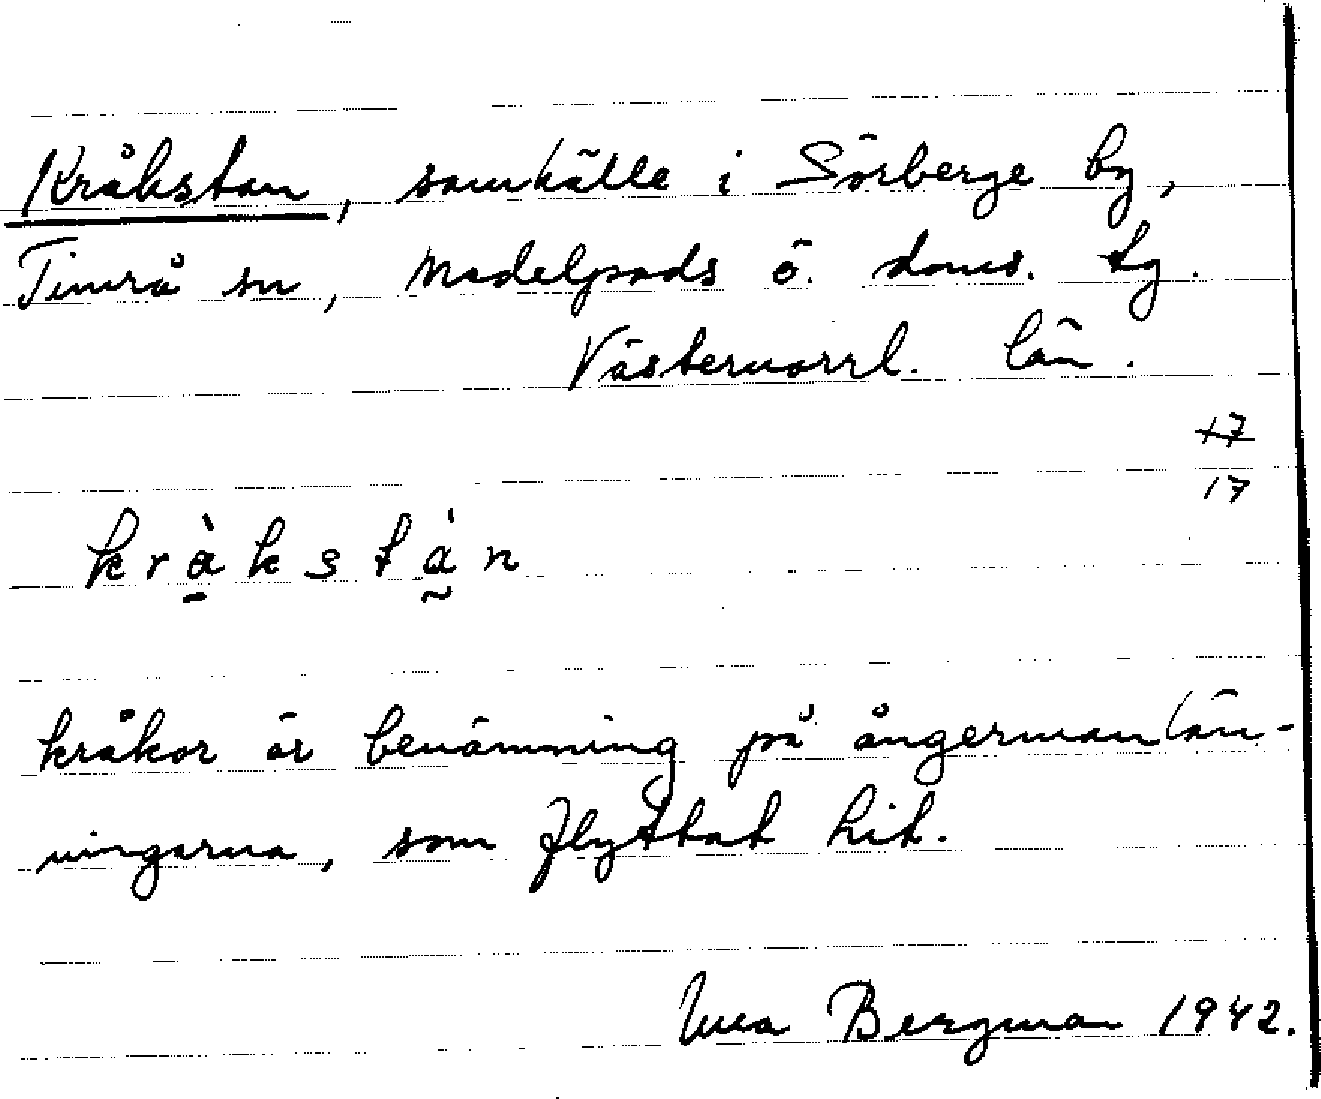 Kråkstan, samhälle i Sörberge by,
Timrå sn, Medelpads ö. doms. tg.
Västernorrl. län.
17
17
kråkstàn
kråkor är benämning på ångermanlän-
ningarna, som flyttat hit.
Bergman 1942.